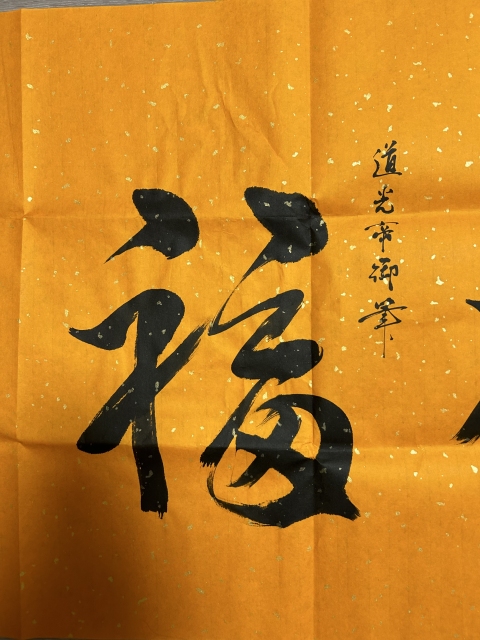 道光帝御筆
福